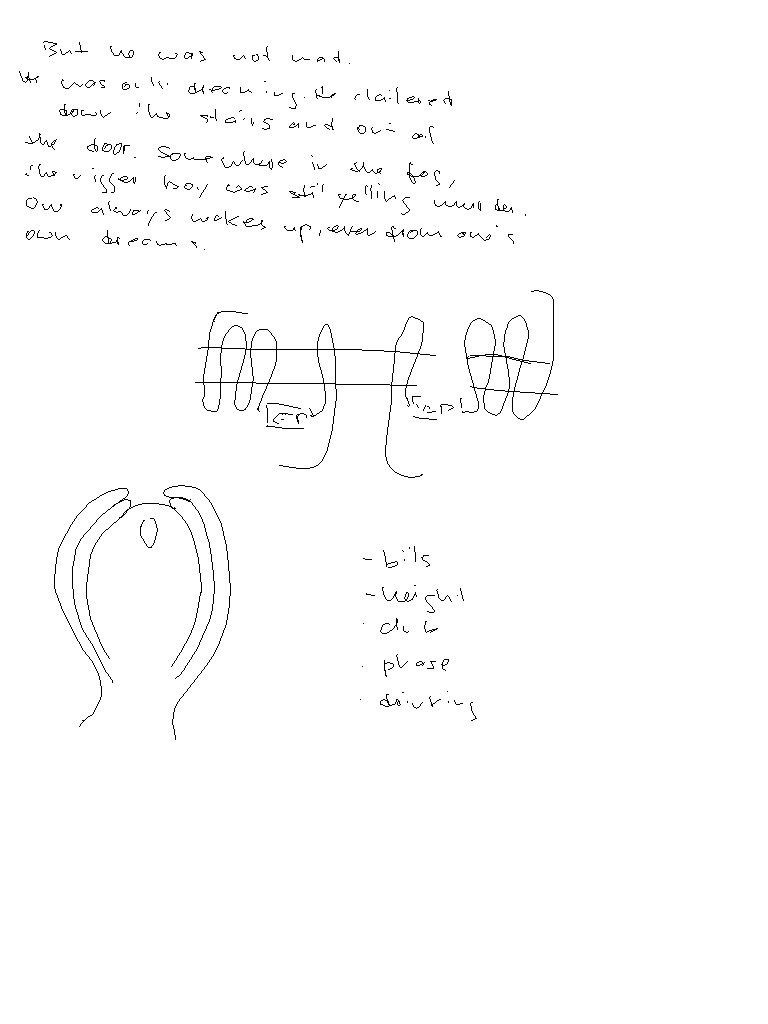 But he was not mad.
He was only dreaming. He clattered
down the stairs and out of
the door. Somewhere in the fog,
the nigger boy was still yelling murder.
One always wakes up, even from one's
own dreams.
- bils
- height
· club
· phase
· driving